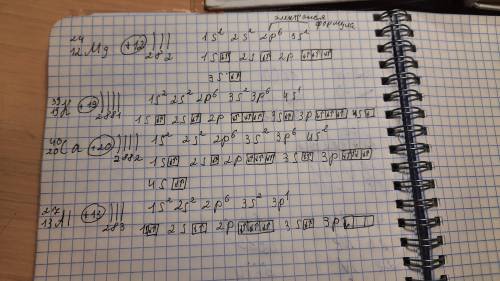 электронная
формула
24 12 Mg +12 ) ) ) 2 8 2 1S² 2S² 2p⁶ 3S²
1S [↑↓] 2S [↑↓] 2p [↑↓][↑↓][↑↓]
3S [↑↓]
39 19 K +19 ) ) ) ) 2 8 8 1 1S² 2S² 2p⁶ 3S² 3p⁶ 4S¹
1S [↑↓] 2S [↑↓] 2p [↑↓][↑↓][↑↓] 3S [↑↓] 3p [↑↓][↑↓][↑↓] 4S
40 20 Ca +20 ) ) ) ) 2 8 8 2 1S² 2S² 2p⁶ 3S² 3p⁶ 4S²
1S [↑↓] 2S [↑↓] 2p [↑↓][↑↓][↑↓] 3S [↑↓] 3p [↑↓][↑↓][↑↓]
4S [↑↓]
27 13 Al ) ) ) 2 8 3 1S² 2S² 2p⁶ 3S² 3p¹
1S [↑↓] 2S [↑↓] 2p [↑↓][↑↓][↑↓] 3S [↑↓] 3p [↑][ ][ ]